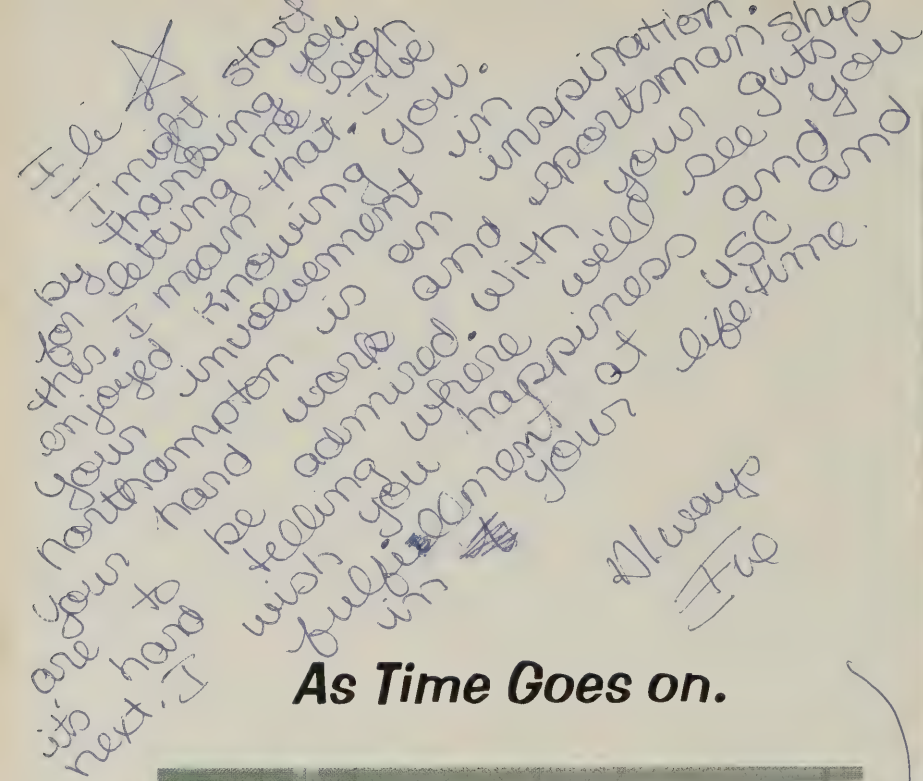 I might start
by thanking you
for letting me sign
this. I mean that. I've
enjoyed knowing you.
Your involvement in
northampton is an inspiration.
your hard work and sportsmanship
are to be admired. with your guts
it's hard telling where we'll see you
next. I wish you happiness and
fulfillment at USC and
in your lifetime.
Always
As Time Goes on.